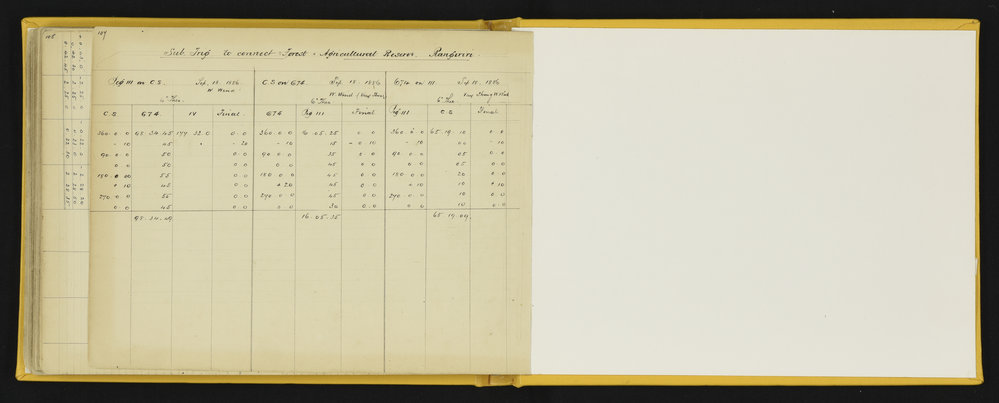 107
Sub Trig to connect Forest & Agricultural Reserve. Rangiriri
Peg III on C.S. Sep. 18. 1886
W. Wind
6" Theo.
C.S. 674. IV Final.
360.0.0 98.34.45 177.32.0 0.0
- 10 45 - 20
90.0.0 50 0.0
0.0 50 0.0
180.0.00 55 0.0
+ 10 45 0.0
270.0.0 55 0.0
0.0 45 0.0
98.34.49
C.S on 674. Sep. 18. 1886
W. Wind (Very Thin)
6" Theo
674 Peg III Final
360.0.0 16.05.25 0.0
- 10 15 - 0.10
90.0.0 35 0.0
0.0 45 0.0
180.0.0 45 0.0
+ 20 45 0.0
270.0.0 45 0.0
0.0 30 0.0
16.05.35
674 on III Sep. 18. 1886
6" Theo
Peg III C.S Final
360.0.0 65.19.10 0.0
- 10 00 - 10
90.0.0 05 0.0
0.0 05 0.0
180.0.0 20 0.0
+ 10 10 + 10
270.0.0 10 0.0
0.0 10 0.0
65.19.09